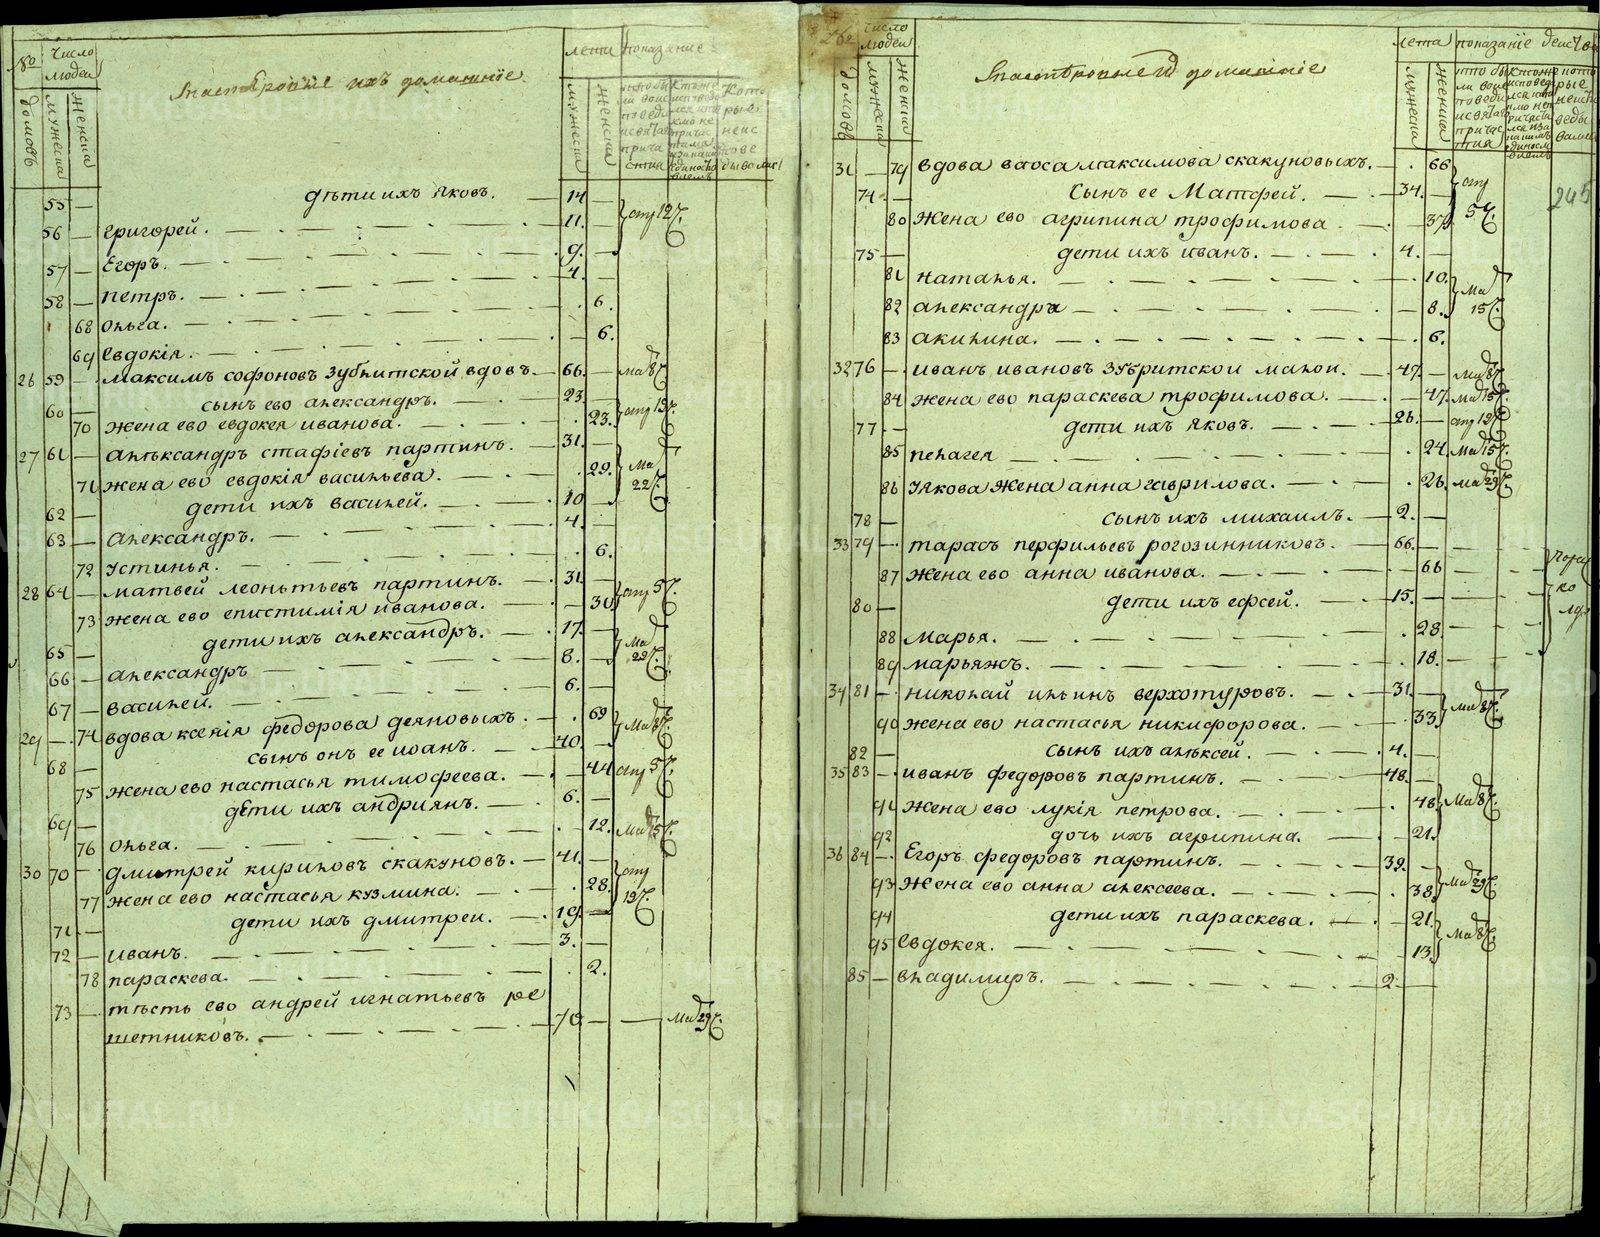 №
число
людей
домовъ
мужеска
женска
Мастеровые ихъ домашніе
лета
показаніе
мужеска
женска
55 — дѣти ихъ Яковъ. — 14 —
56 — григорей. — 11. — апр 12
57 — Егоръ. — 9. —
58 — петръ. — 4. —
68 Ольга. — 6.
69 Евдокія. — 6.
26 59 — Максимъ софоновъ Зубритской вдовъ. — 66. — Маїя 8
60 — сынъ ево александръ. — 23. —
70 жена ево евдокея иванова. — 23. апр 19
27 61 — александръ стафіевъ партинъ. — 31. —
71 жена ево евдокія васильева. — 29. Маїя 22
62 — дети ихъ василей. — 10 —
63 — александръ. — 4. —
72 Устинья. — 6.
28 64 — матвей леонтьевъ партинъ. — 31. —
73 жена ево епистимія иванова. — 30 апр 5
65 — дети ихъ александръ. — 17. —
66 — александръ — 8. — Маїя 29
67 — василей. — 6. —
29 — 74 вдова ксенія федорова деяновыхъ. — 69
68 — сынъ онъ ее иоанъ. — 40. — Маїя 8
75 жена ево настасья тимофеева. — 44 апр 5
69 — дети ихъ андриянъ. — 6. —
76 Ольга. — 12. Маїя 15
30 70 — дмитрей кириловъ скакуновъ. — 41. —
77 жена ево настасья кузмина. — 28. апр 19
71 — дети ихъ дмитреи. — 19. —
72 — иванъ. — 3. —
78 параскева. — 2.
73 — тѣсть ево андрей игнатьевъ ре
шетниковъ. — 70 — — Маїя 29
число
людей
домовъ
мужеска
женска
Мастеровые и домашніе
лета
показаніе действа
мужеска
женска
245
31 — 79 вдова васса максимова скакуновыхъ. — 66
74 — сынъ ее Матфей. — 34. — апр 5
80 жена ево агрипина трофимова. — 37
75 — дети ихъ иванъ. — 4. —
81 наталья. — 10.
82 александра — 8. Маїя 15
83 акилина. — 6.
32 76 — иванъ ивановъ Зубритскои малои. — 47. — Маїя 8
84 жена ево параскева трофимова. — 47. Маїя 15
77 — дети ихъ яковъ. — 26. — апр 12
85 пелагея — 24. Маїя 15
86 Якова жена анна гаврилова. — 26. Маїя 29
78 — сынъ ихъ михаилъ. — 2. —
33 79 — тарасъ перфильевъ рогозинниковъ. — 66. —
87 жена ево анна иванова. — 66
80 — дети ихъ ефсей. — 15. —
88 Марья. — 28.
89 марьяжъ. — 18.
34 81 — николай ильинъ верхотуровъ. — 31. —
90 жена ево настасья никифорова. — 33. Маїя 8
82 — сынъ ихъ алексей. — 4. —
35 83 — иванъ федоровъ партинъ. — 48. —
91 жена ево лукія петрова. — 48 Маїя 8
92 дочь ихъ агрипина. — 21.
36 84 — Егоръ федоровъ партинъ. — 39. —
93 Жена ево анна алексеева. — 38. Маїя 29
94 дети ихъ параскева. — 21.
95 Евдокея. — 13. Маїя 8
85 — владимиръ. — 2 —
METRIKI.GASO-URAL.RU